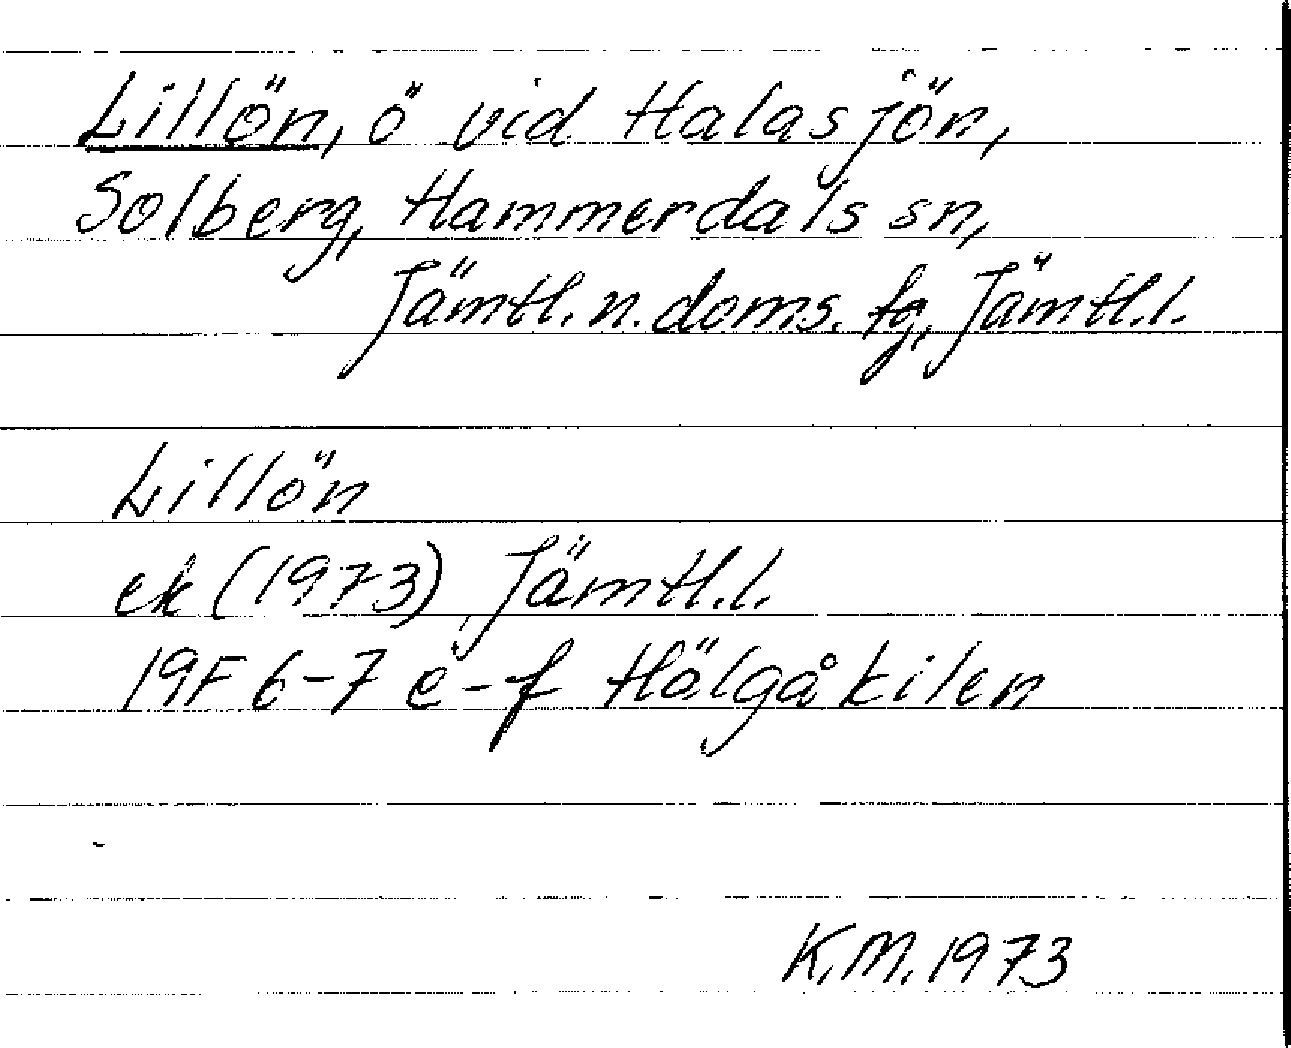 Lillön, ö vid Halasjön,
Solberg, Hammerdals sn,
Jämtl. n. doms. fg, Jämtl. l.
Lillön
ek (1973) Jämtl. l.
19F 6-7 e-f Hölgåkilen
K.M. 1973